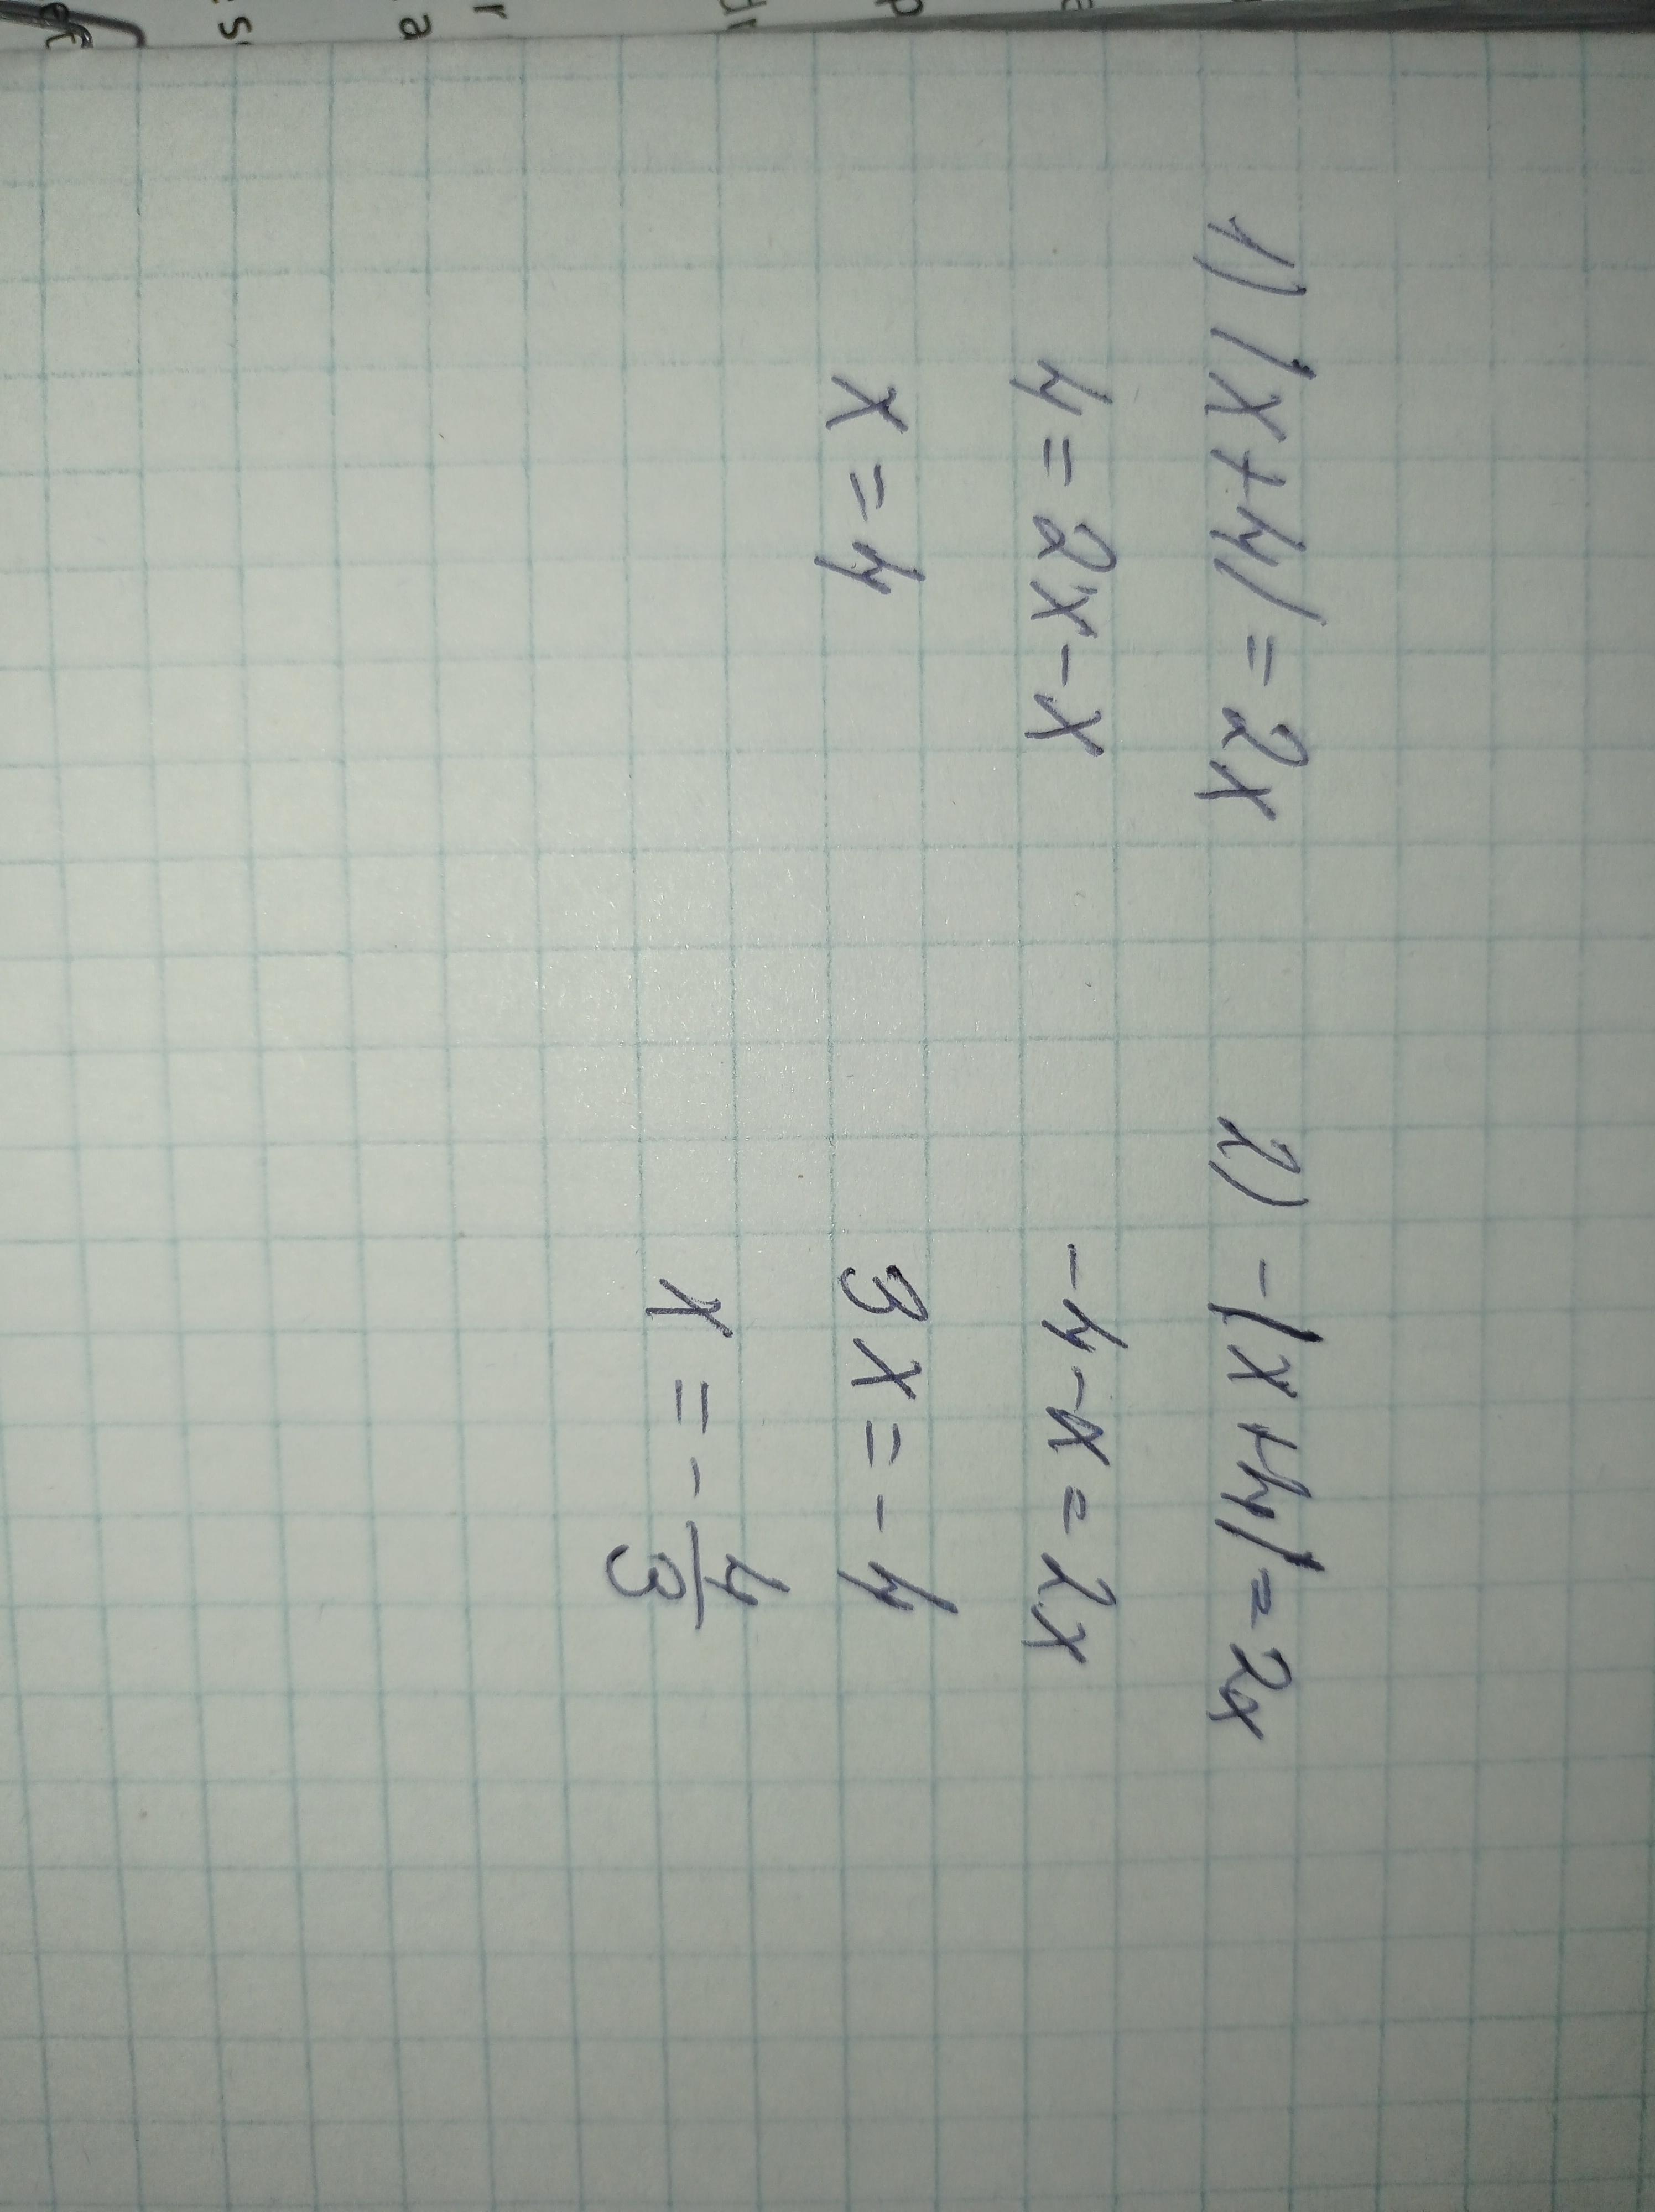 1) |x+4|=2x
4=2x-x
x=4
2) -|x+4|=2x
-4-x=2x
3x=-4
x=-4/3